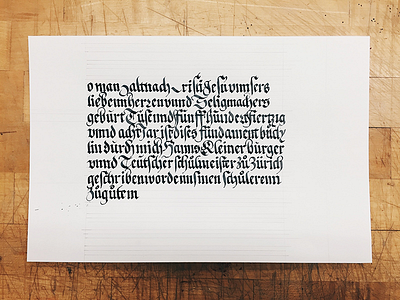 o man zalt nach Cristi Jesu unnsers
liebenn herren unnd Seligmachers
geburt Tusent unnd fünff hundert fiertzig
unnd acht Jar ist dises fundament büch
lin durch mich Hanns Kleiner burger
unnd Teutscher schůlmeister zů Zürich
geschriben worden sinen schülerenn
zůgůtem